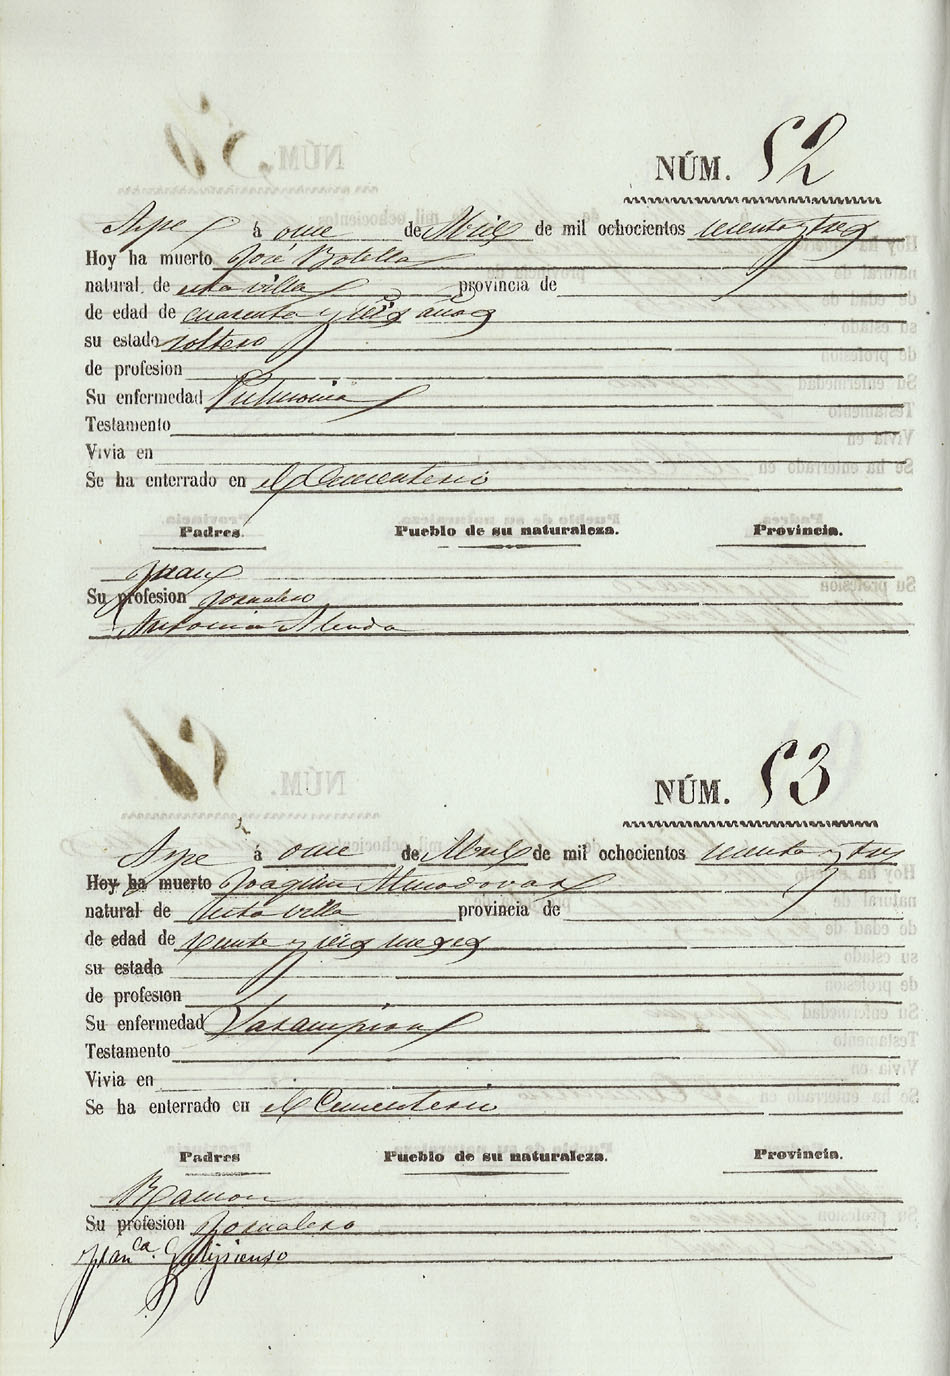 NÚM. 52
Aspe á once de Abril de mil ochocientos sesenta y tres
Hoy ha muerto José Botella
natural de esta villa provincia de
de edad de cuarenta y seis años
su estado soltero
de profesion
Su enfermedad Pulmonia
Testamento
Vivia en
Se ha enterrado en el Cementerio
Padres. Pueblo de su naturaleza. Provincia.
Juan
Su profesion Jornalero
Antonia Alenda
NÚM. 53
Aspe á once de Abril de mil ochocientos sesenta y tres
Hoy ha muerto Joaquin Almodovar
natural de esta villa provincia de
de edad de veinte y seis meses
su estado
de profesion
Su enfermedad Sarampion
Testamento
Vivia en
Se ha enterrado en el Cementerio
Padres Pueblo de su naturaleza. Provincia.
Ramon
Su profesion Jornalero
Fran.ca Galipienso